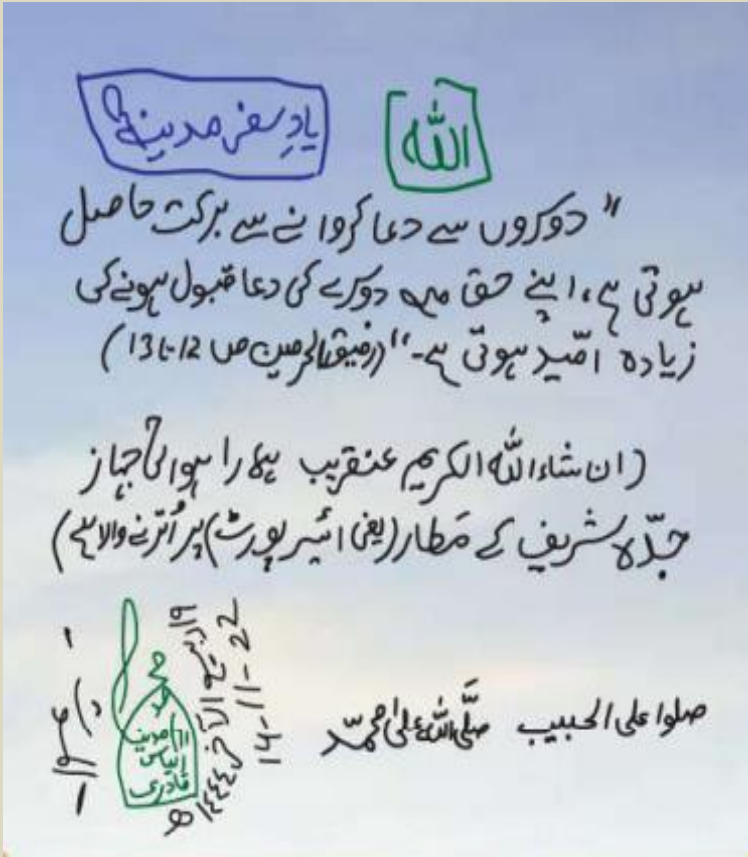 الله
یادِ سفرِ مدینہ
"دوسروں سے دعا کروانے سے برکت حاصل
ہوتی ہے، اپنے حق میں دوسرے کی دعا قبول ہونے کی
زیادہ امّید ہوتی ہے۔" (رفیق الحرمین ص 12 تا 13)
(ان شاء اللہ الکریم عنقریب ہمارا ہوائی جہاز
جدّہ شریف کے مَطار (یعنی ائیرپورٹ) پر اُترنے والا ہے)
صلوا علی الحبیب صلَّی اللہ علیٰ محمّد
۱۹ ربیع الآخر ١٤٤٤ھ
14-11-22
مدینہ
الیاس
قادری